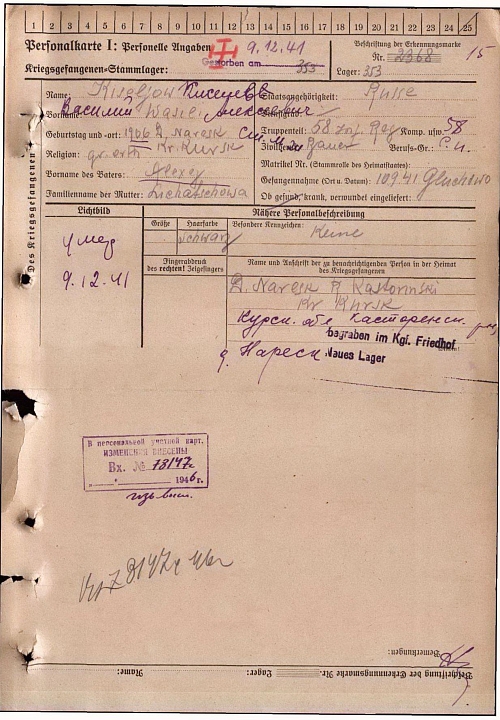 1 2 3 4 5 6 7 8 9 10 11 12 13 14 15 16 17 18 19 20 21 22 23 24 25
Personalkarte I: Personelle Angaben
9.12.41
Beschriftung der Erkennungsmarke
15
Gestorben am 353
Nr. 2368
Kriegsgefangenen-Stammlager:
Lager: 353
Des Kriegsgefangenen
Name: Kiseljow Киселев
Staatsangehörigkeit: Russe
Vorname: Василий Wasili Алексеевич
Dienstgrad:
Geburtstag und -ort: 1906 D. Naresk
Truppenteil: 58 Inf. Reg Komp. usw. 58
Kr. Kursk
Zivilberuf: Bauer Berufs-Gr.:
Religion: gr. orth
Matrikel Nr. (Stammrolle des Heimatstaates):
Vorname des Vaters: Alexej
Gefangennahme (Ort u. Datum): 10.9.41 Gluchowo
Familienname der Mutter: Lichatschowa
Ob gesund, krank, verwundet eingeliefert:
Lichtbild
Nähere Personalbeschreibung
Größe
Haarfarbe
Besondere Kennzeichen:
schwarz
Keine
умер
9.12.41
Fingerabdruck
des rechten! Zeigefingers
Name und Anschrift der zu benachrichtigenden Person in der Heimat
des Kriegsgefangenen
D. Naresk R. Kastorinski
Kr. Kursk
Курск. обл Касторенск.
begraben im Kgl. Friedhof
д. Нареск
Neues Lager
В персональной учетной карт.
ИЗМЕНЕНИЯ ВНЕСЕНЫ
Вх. № 78147
1946 г.
Bemerkungen:
Beschriftung der Erkennungsmarke Nr.
Lager:
Name: